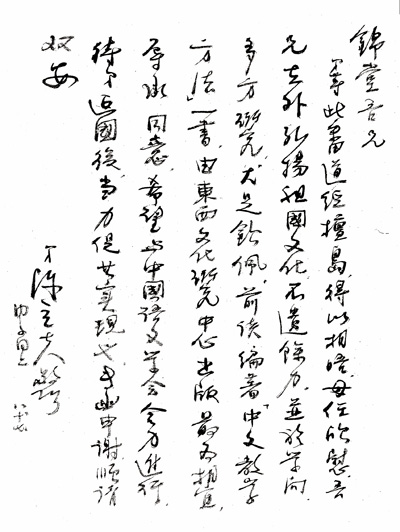 錦堂吾兄
弟此番道經檀島,得以相晤,毋任欣慰。吾
兄在外弘揚祖國文化,不遺餘力,並於學問
多方研究,尤足欽佩。前談編著「中文教學
方法」一書,由東西文化研究中心出版,最為相宜,
承同意,希望與中國語文學會合力進行,
待弟返國後,當力促其實現也。專函申謝,順請
双安
弟